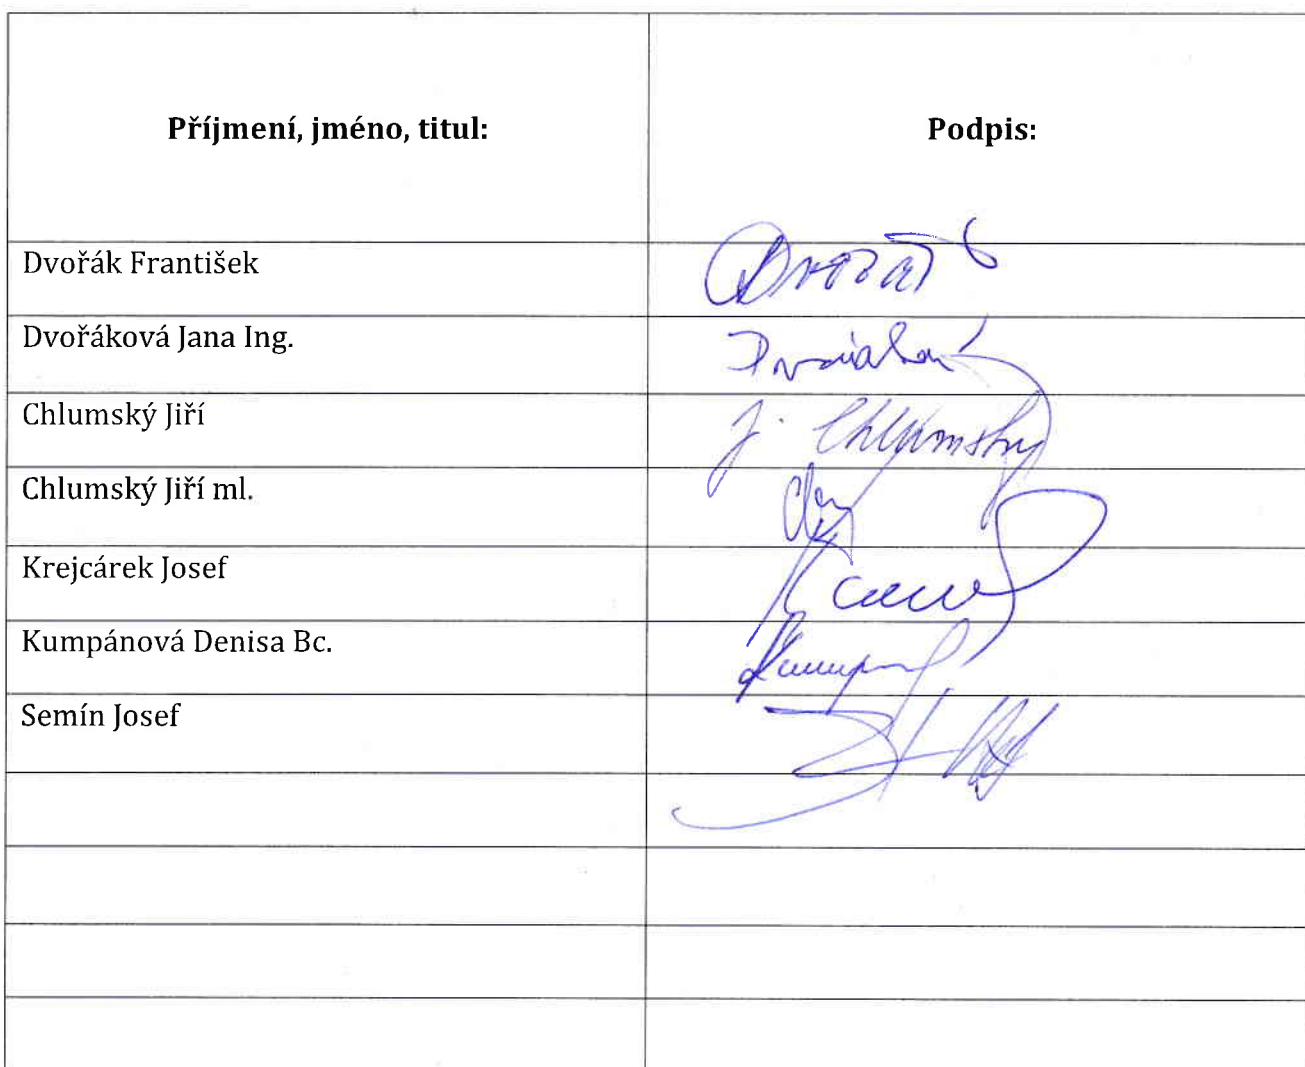 Příjmení, jméno, titul: Podpis:
Dvořák František Dvořák
Dvořáková Jana Ing.
Chlumský Jiří J. Chlumský
Chlumský Jiří ml.
Krejcárek Josef
Kumpánová Denisa Bc.
Semín Josef